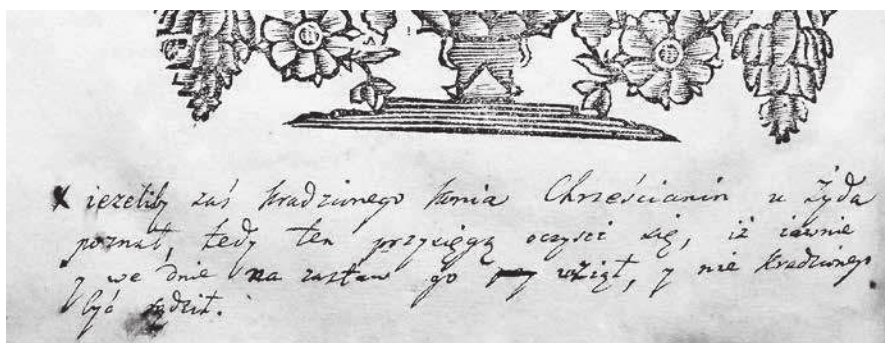 X ieżeliby zaś kradzionego konia Chrześcianin u Żyda
poznał, tedy ten przysięgą oczyści się, iż iawnie
y we dnie na zastaw go wziął, y nie kradzionego
być sądził.